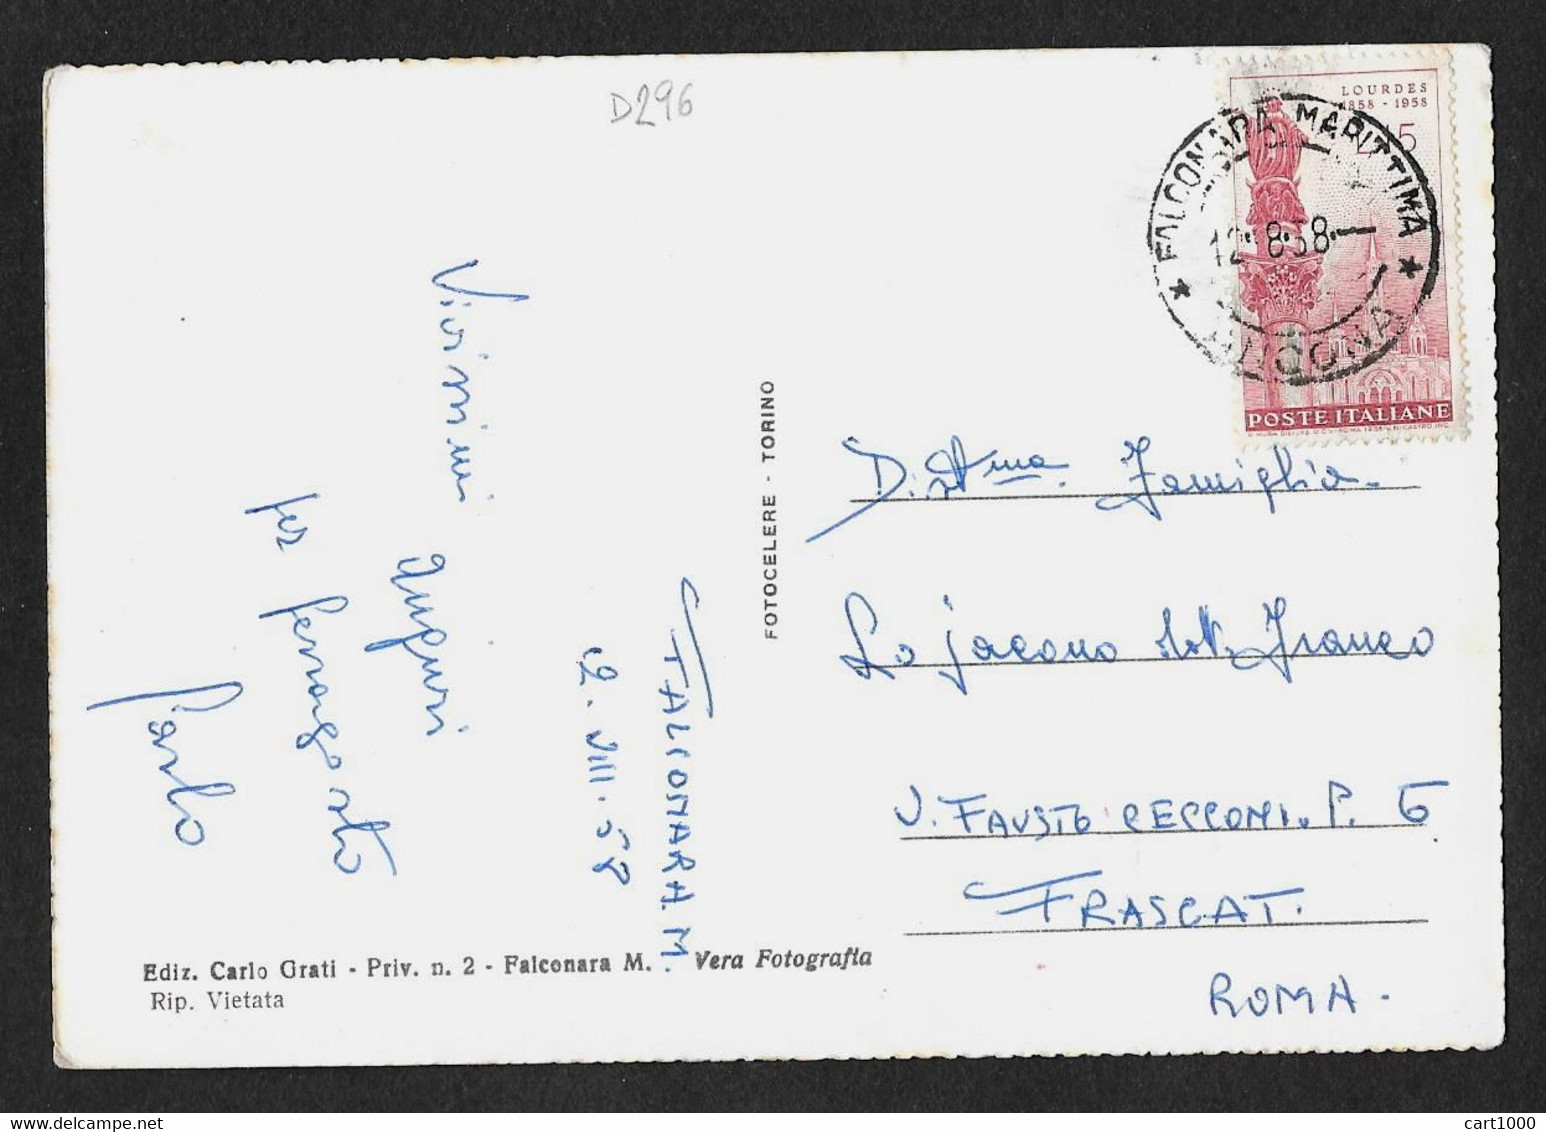 D296
LOURDES
1858 - 1958
L. 15
POSTE ITALIANE
FALCONARA MARITTIMA
12.8.58.
ANCONA
Vivissimi
auguri
per ferragosto
Carlo
FALCONARA. M.
12. VIII. 58
FOTOCELERE - TORINO
Dist.ma Famiglia
Lo Jacono dott. Franco
V. FAUSTO CECCONI. P. 6
FRASCATI
ROMA -
Ediz. Carlo Grati - Priv. n. 2 - Falconara M. - Vera Fotografia
Rip. Vietata
cart1000